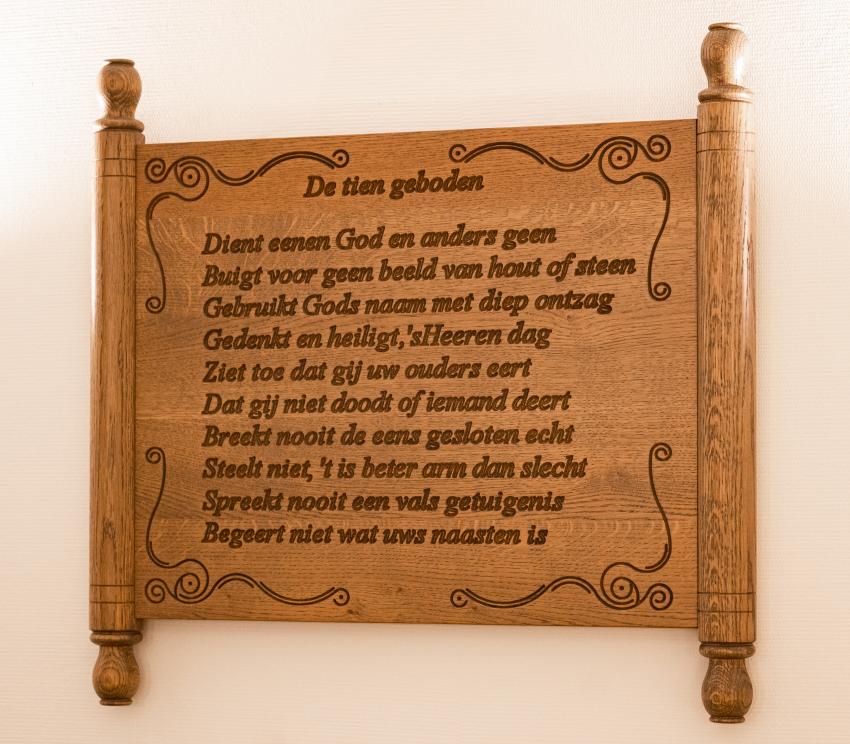 De tien geboden
Dient eenen God en anders geen
Buigt voor geen beeld van hout of steen
Gebruikt Gods naam met diep ontzag
Gedenkt en heiligt,'sHeeren dag
Ziet toe dat gij uw ouders eert
Dat gij niet doodt of iemand deert
Breekt nooit de eens gesloten echt
Steelt niet, 't is beter arm dan slecht
Spreekt nooit een vals getuigenis
Begeert niet wat uws naasten is